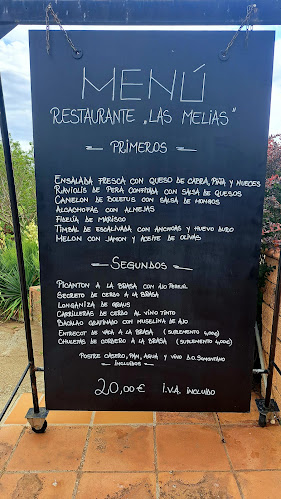 MENÚ
RESTAURANTE "LAS MELIAS"
PRIMEROS
ENSALADA FRESCA CON QUESO DE CABRA, PIÑA Y NUECES
RAVIOLIS DE PERA CONFITADA CON SALSA DE QUESOS
CANELON DE BOLETUS CON SALSA DE HONGOS
ALCACHOFAS CON ALMEJAS
FIDEUA DE MARISCO
TIMBAL DE ESCALIVADA CON ANCHOAS Y HUEVO DURO
MELON CON JAMON Y ACEITE DE OLIVAS
SEGUNDOS
PICANTON A LA BRASA CON AJO PEREJIL
SECRETO DE CERDO A LA BRASA
LONGANIZA DE GRAUS
CARRILLERAS DE CERDO AL VINO TINTO
BACALAO GRATINADO CON MUSELINA DE AJO
ENTRECOT DE VACA A LA BRASA (SUPLEMENTO 4,00€)
CHULETAS DE CORDERO A LA BRASA (SUPLEMENTO 4,00€)
POSTRE CASERO, PAN, AGUA Y VINO D.O. SOMONTANO
INCLUIDOS
20,00€ I.V.A. INCLUIDO